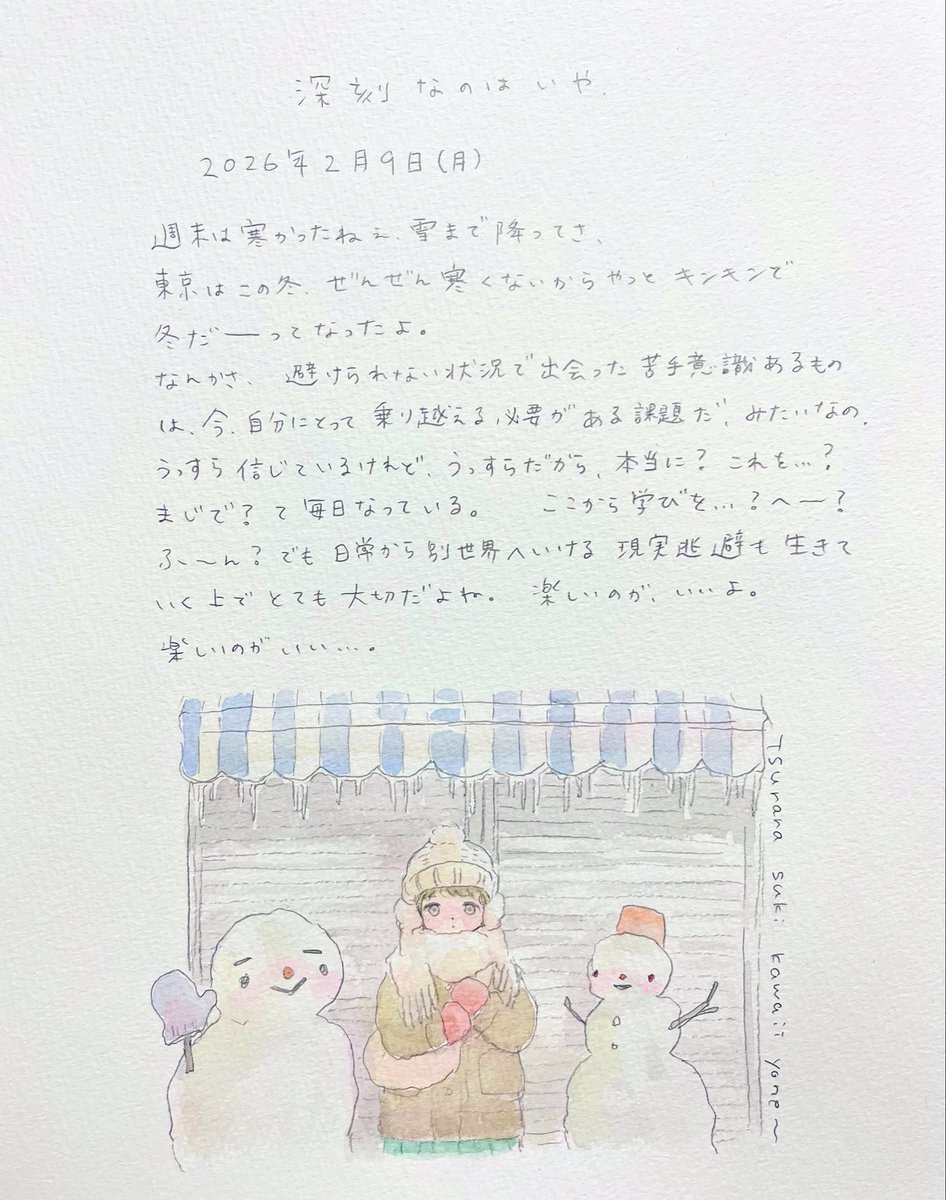 深刻なのはいや.
2026年2月9日(月)
週末は寒かったねぇ、雪まで降ってさ、
東京はこの冬、ぜんぜん寒くないからやっとキンキンで
冬だーってなったよ。
なんかさ、避けられない状況で出会った苦手意識あるもの
は、今、自分にとって乗り越える必要がある課題だ、みたいなの、
うっすら信じているけれど、うっすらだから、本当に?これを…?
まじで?て毎日なっている。 ここから学びを…?へー?
ふ〜ん?でも日常から別世界へいける現実逃避も生きて
いく上でとても大切だよね。 楽しいのが、いいよ。
楽しいのがいい…。
Tsurara suki kawaii yone~